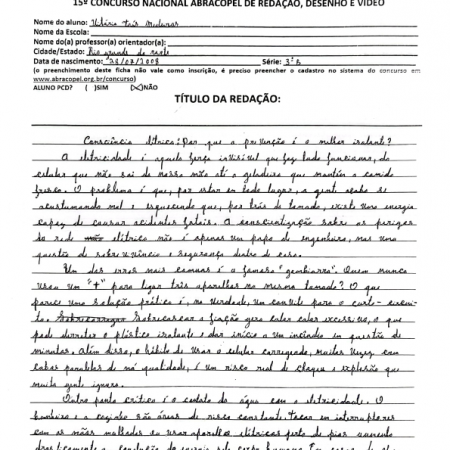 15º CONCURSO NACIONAL ABRACOPEL DE REDAÇÃO, DESENHO E VÍDEO
Nome do aluno:
Nome da Escola:
Nome do(a) professor(a) orientador(a):
Cidade/Estado: Rio grande do norte
Data de nascimento: /07/2008 Série: 3º B
(o preenchimento desta ficha não vale como inscrição, é preciso preencher o cadastro no sistema do concurso em:
www.abracopel.org.br/concurso)
ALUNO PCD? ( )SIM (X)NÃO
TÍTULO DA REDAÇÃO:
Consciência elétrica: Por que a prevenção é o melhor isolante?
A eletricidade é aquela força invisível que faz tudo funcionar, do
celular que não sai de nossa mão até a geladeira que mantém a comida
fresca. O problema é que, por estar em todo lugar, a gente acaba se
acostumando mal e esquecendo que, por trás da tomada, existe uma energia
capaz de causar acidentes fatais. A conscientização sobre os perigos
da rede elétrica não é apenas um papo de engenheiro, mas uma
questão de sobrevivência e segurança dentro de casa.
Um dos erros mais comuns é a famosa "gambiarra". Quem nunca
usou um "T" para ligar três aparelhos na mesma tomada? O que
parece uma solução prática é, na verdade, um convite para o curto-circui-
to. Sobrecarregar a fiação gera calor excessivo, o que
pode derreter o plástico isolante e dar início a um incêndio em questão de
minutos. Além disso, o hábito de usar o celular carregando, muitas vezes com
cabos paralelos de má qualidade, é um risco real de choque e explosão que
muita gente ignora.
Outro ponto crítico é o contato da água com a eletricidade. O
banheiro e a cozinha são áreas de risco constante. Tocar em interruptores
com as mãos molhadas ou usar aparelhos elétricos perto de pias aumenta
drasticamente a condução da corrente pelo corpo humano. Em